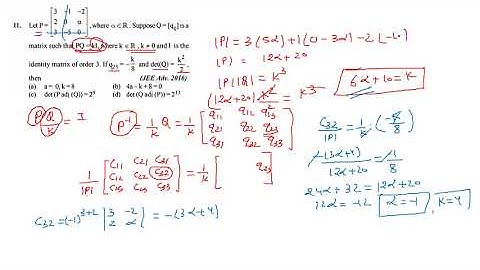 11. Let P = [3 -1 -2
2 0 α
3 -5 0], where α ∈ R. Suppose Q = [qij] is a
matrix such that PQ = kI, where k ∈ R, k ≠ 0 and I is the
identity matrix of order 3. If q23 = -k/8 and det(Q) = k²/2,
then (JEE Adv. 2016)
(a) α = 0, k = 8 (b) 4α - k + 8 = 0
(c) det (P adj (Q)) = 2⁹ (d) det (Q adj (P)) = 2¹³
|P| = 3(5α) + 1(0 - 3α) - 2(-10)
|P| = 12α + 20
|P||Q| = k³
(12α+20) k²/2 = k³
6α + 10 = k
P Q/k = I
P⁻¹ = 1/k Q = 1/k [q11 q12 q13
q21 q22 q23
q31 q32 q33]
1/|P| [C11 C21 C31
C12 C22 C32
C13 C23 C33] = 1/k [ q23 ]
C32 = (-1)³⁺² |3 -2
2 α| = -(3α+4)
C32/|P| = 1/k (-k/8)
-(3α+4)/12α+20 = -1/8
24α + 32 = 12α + 20
12α = -12
α = -1, k = 4